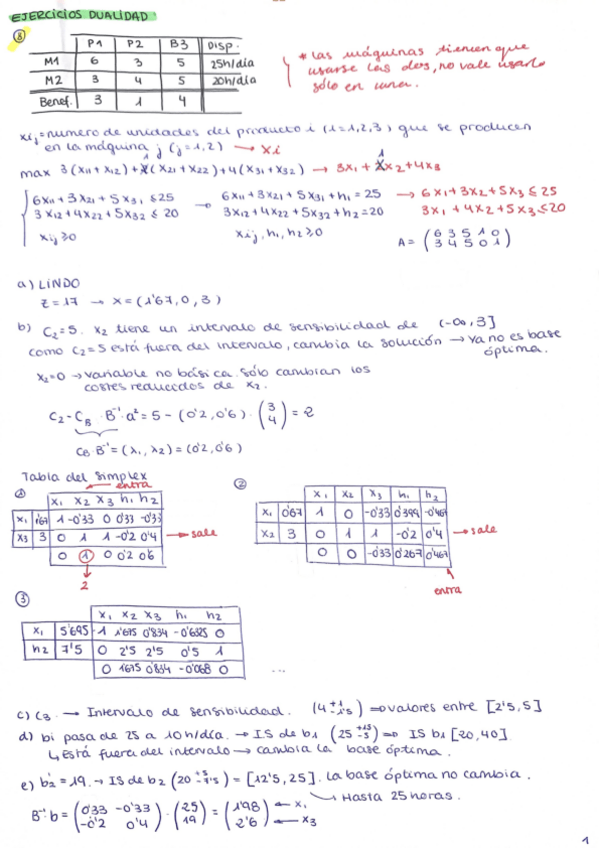 EJERCICIOS DUALIDAD
8
P1 P2 B3 Disp.
M1 6 3 5 25h/día
M2 3 4 5 20h/día
Benef. 3 1 4
* Las máquinas tienen que
usarse las dos, no vale usarlo
sólo en una.
xij = numero de unidades del producto i (i=1,2,3) que se producen
en la máquina j (j=1,2) → xi
max 3(x11 + x12) + 1(x21 + x22) + 4(x31 + x32) → 3x1 + 1x2 + 4x3
6x11 + 3x21 + 5x31 ≤ 25 → 6x11 + 3x21 + 5x31 + h1 = 25 → 6x1 + 3x2 + 5x3 ≤ 25
3x12 + 4x22 + 5x32 ≤ 20 3x12 + 4x22 + 5x32 + h2 = 20 3x1 + 4x2 + 5x3 ≤ 20
xij ≥ 0 xij, h1, h2 ≥ 0 A = (6 3 5 1 0
3 4 5 0 1)
a) LINDO
z = 17 → x = (1'67, 0, 3)
b) C2 = 5. x2 tiene un intervalo de sensibilidad de (-∞, 3]
como c2 = 5 está fuera del intervalo, cambia la solución → ya no es base
óptima.
x2 = 0 → variable no básica. Sólo cambian los
costes reducidos de x2.
C2 - CB · B⁻¹ · a² = 5 - (0'2, 0'6) · (3
4) = 2
CB · B⁻¹ = (λ1, λ2) = (0'2, 0'6)
Tabla del simplex
① entra
x1 x2 x3 h1 h2
x1 1'67 1 -0'33 0 0'33 -0'33
x3 3 0 1 1 -0'2 0'4 → sale
0 1 0 0'2 0'6
2
②
x1 x2 x3 h1 h2
x1 0'67 1 0 -0'33 0'399 -0'467
x2 3 0 1 1 -0'2 0'4 → sale
0 0 -0'33 0'267 0'467
entra
③
x1 x2 x3 h1 h2
x1 5'695 1 1'675 0'834 -0'6325 0
h2 7'5 0 2'5 2'5 0'5 1
0 1675 0'834 -0'068 0 ...
c) C3. → Intervalo de sensibilidad. (4 +1 -1'5) ⇒ valores entre [2'5, 5]
d) bi pasa de 25 a 10h/día. → IS de b1 (25 +15 -5) ⇒ IS b1 [20, 40]
↳ Está fuera del intervalo → cambia la base óptima.
e) b2' = 19. → IS de b2 (20 +5 -7'5) = [12'5, 25]. La base óptima no cambia.
↳ Hasta 25 horas.
B⁻¹ · b = (0'33 -0'33
-0'2 0'4) · (25
19) = (1'98
2'6) ← x1
← x3
1